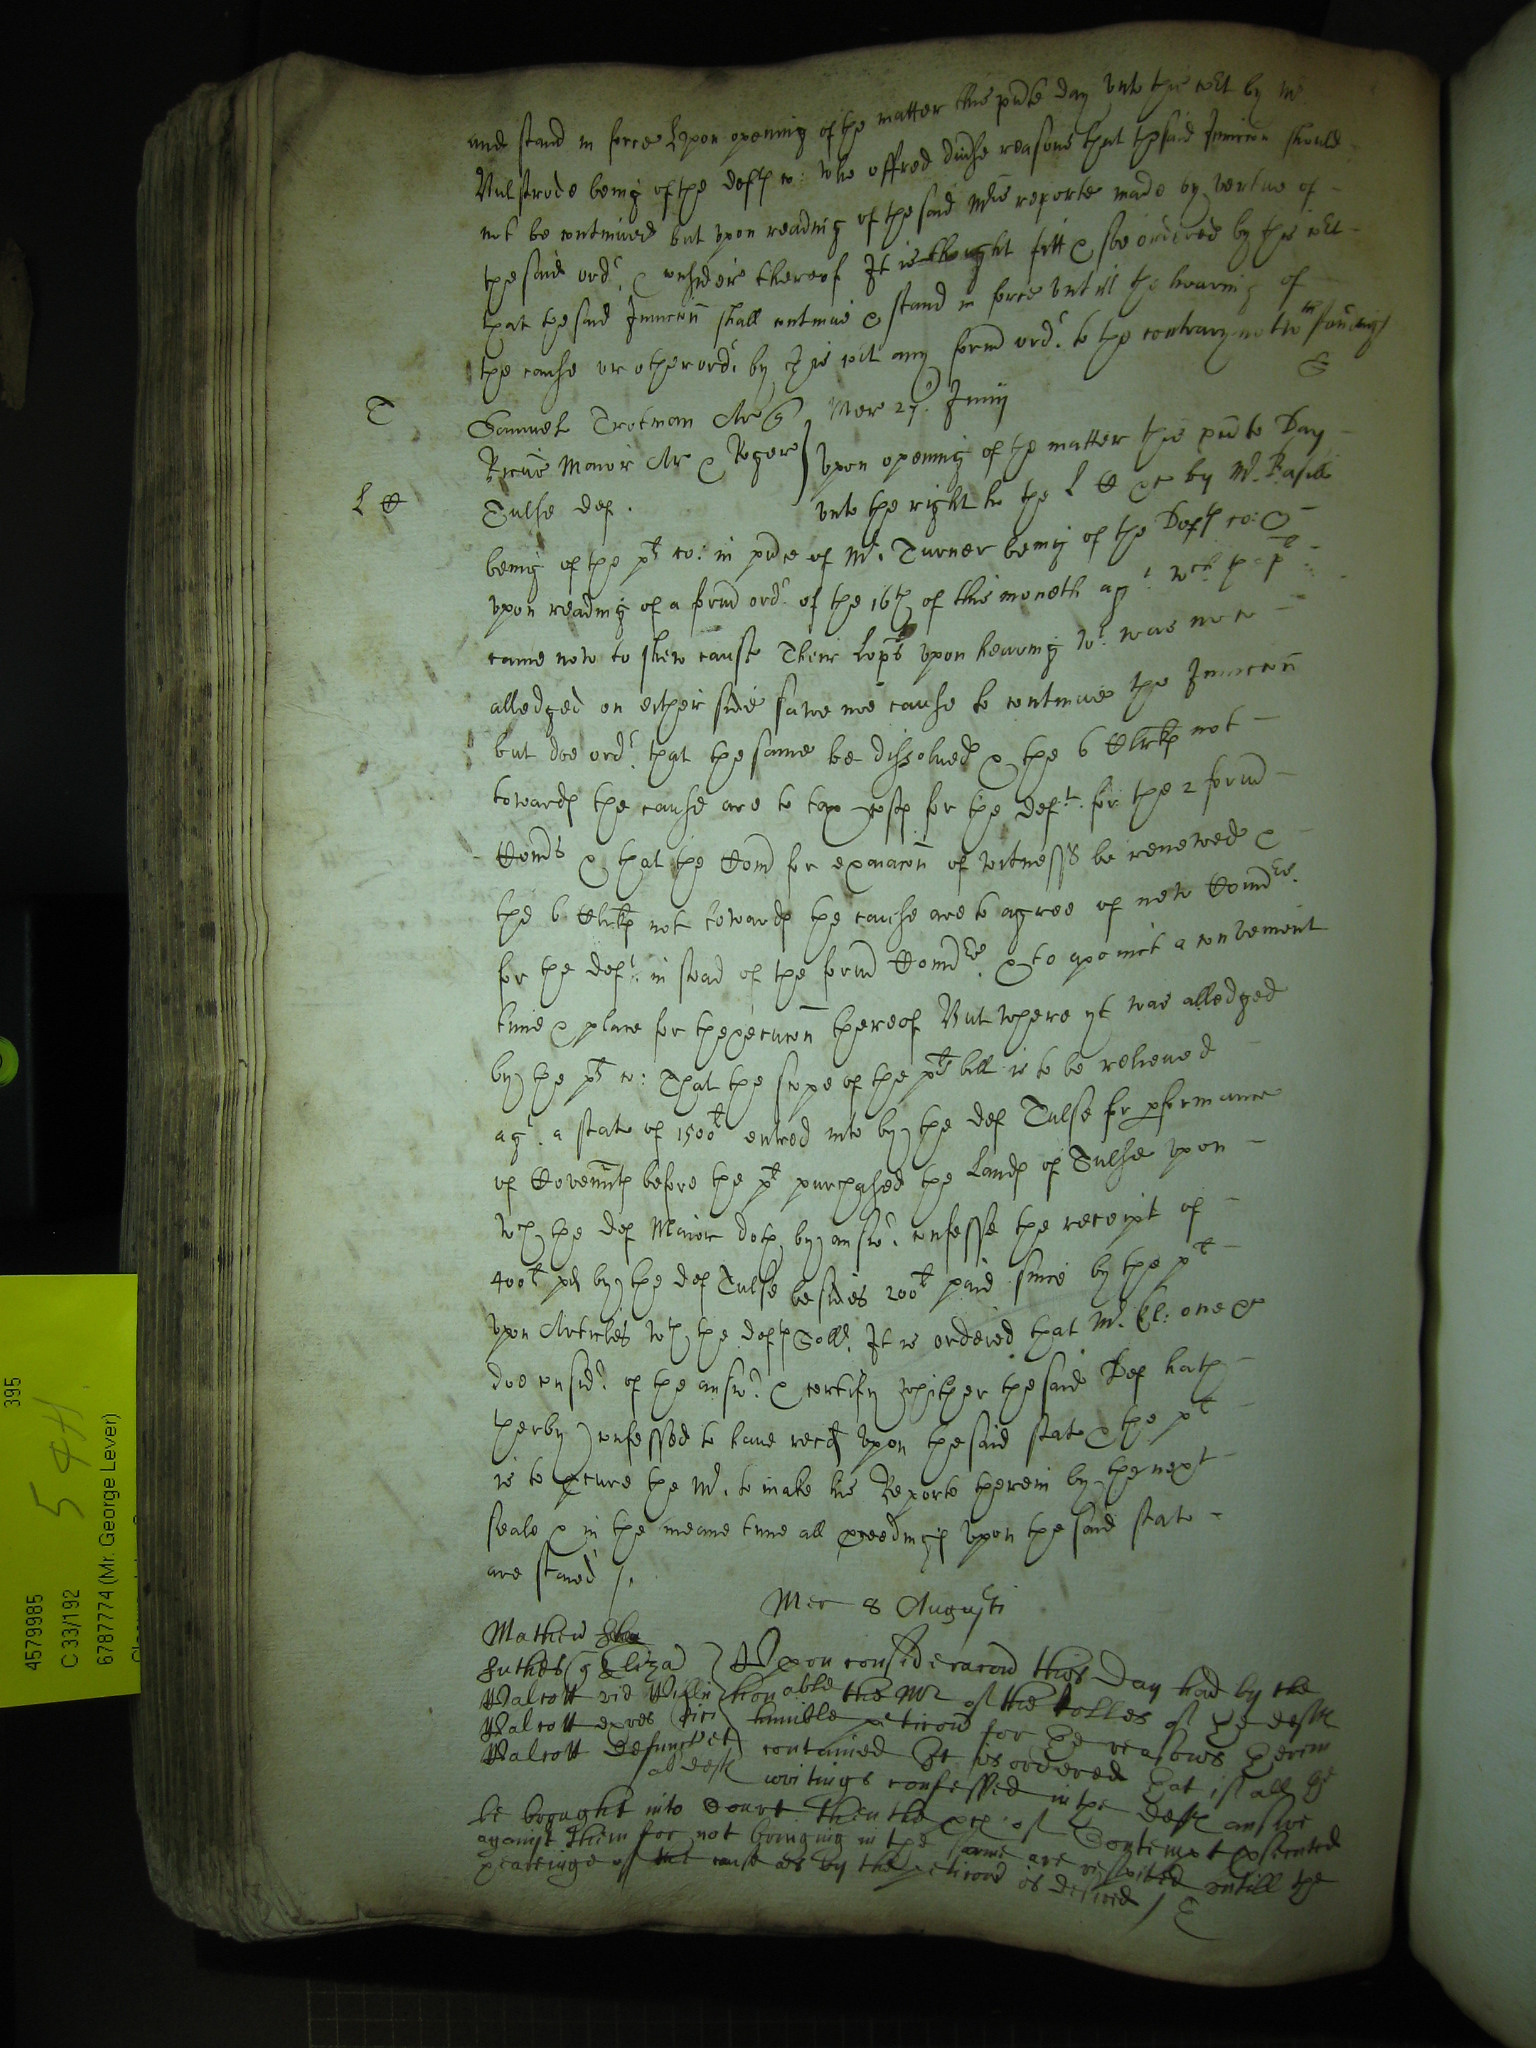 and stand in force Upon opening of the matter this pnte day unto this cot by Mr
Bulstrode being of the defts co: who offred divse reasons that the said Iniunccon should
not be continued but upon reading of the said Mrs reporte made by vertue of
the said ordr & considn thereof It is thought fitt & soe ordered by this cot
that the said Iniunccon shall continue & stand in force untill the hearing of
the cause or other ordr by this cot any formr ordr to the contrary notwthstanding
T
Samuel Trotman Ar q Mer 27 Junij
Ricus Maior Ar & Roger } Upon opening of the matter this pnte Day
L C
Tulse def. unto the right ho the L C &c by Mr
being of the plt co: in pnce of Mr Turner being of the Defts co: &
upon reading of a formr ordr of the 16th of this moneth agt wch the plt
came now to shew cause Their Lopps upon hearing wt was now
alledged on either side sawe noe cause to continue the Iniunccon
but doe ordr that the same be dissolued & the 6 Clrks not
towards the cause are to tax costs for the deft for the 2 formr
Coms & that the Com for exaiacon of witnesss be renewed &
the 6 Clrks not towards the cause are to agree of new Comrs
for the deft in stead of the formr Comrs & to apoint a convenient
time & place for thexecucon thereof But where yt was alledged
by the plt co: That the scope of the plts bill is to be relieued
agt a statute of 1500l entred into by the def Tulse for pformance
of Covennts before the plt purchased the Lands of Tulse upon
wch the def Maior doth by answr confesse the receipt of
400l pd by the def Tulse besides 200l paid since by the plt
upon Articles wth the defts Sollr It is ordered that Mr one &c
doe considr of the answr & certify whither the said Def hath
therby confessed to haue recd upon the said statute & the plt
is to pcure the Mr to make his Reporte therein by the next
seale & in the meane time all pceedings upon the said statute
are staied /.
Mer 8 Augusti
Mathew
q Eliza } Upon consideracon this Day had by the
Walcott vid Willi honoable the Mr of the Rolles of the defts
Walcott exores humble peticon for the reasons therein
Walcott Defunct et contained It is ordered that if all the
al defts writings confessed in the defts answr
be brought into Court then the pces of Contempt psecuted
against them for not bringing in the same are respited untill the
hearinge of the cause as by the peticon is desired /
4579985
C 33/192
6787774 (Mr. George Lever)
395